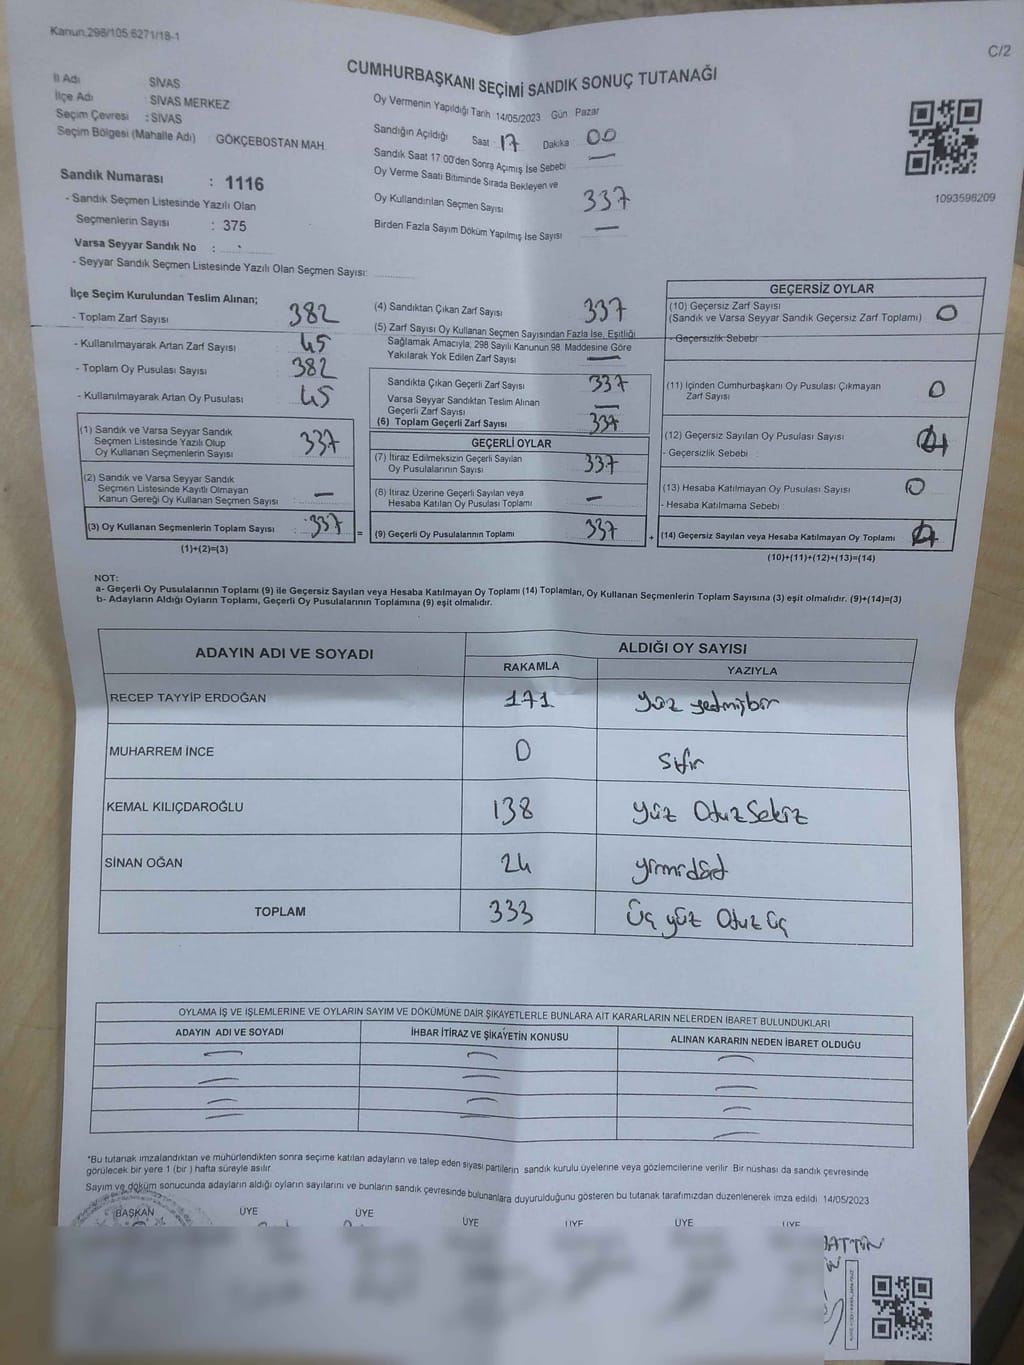 Kanun.298/105.6271/18-1
C/2
CUMHURBAŞKANI SEÇİMİ SANDIK SONUÇ TUTANAĞI
İl Adı SİVAS
İlçe Adı : SİVAS MERKEZ
Seçim Çevresi : SİVAS
Seçim Bölgesi (Mahalle Adı) GÖKÇEBOSTAN MAH
Sandık Numarası : 1116
- Sandık Seçmen Listesinde Yazılı Olan
Seçmenlerin Sayısı : 375
Varsa Seyyar Sandık No :
- Seyyar Sandık Seçmen Listesinde Yazılı Olan Seçmen Sayısı:
Oy Vermenin Yapıldığı Tarih 14/05/2023 Gün Pazar
Sandığın Açıldığı Saat 17 Dakika 00
Sandık Saat 17:00'den Sonra Açımış İse Sebebi —
Oy Verme Saati Bitiminde Sırada Bekleyen ve
Oy Kullandırılan Seçmen Sayısı 337
Birden Fazla Sayım Döküm Yapılmış İse Sayısı —
1093596209
İlçe Seçim Kurulundan Teslim Alınan;
- Toplam Zarf Sayısı 382
- Kullanılmayarak Artan Zarf Sayısı 45
- Toplam Oy Pusulası Sayısı 382
- Kullanılmayarak Artan Oy Pusulası 45
(1) Sandık ve Varsa Seyyar Sandık
Seçmen Listesinde Yazılı Olup
Oy Kullanan Seçmenlerin Sayısı 337
(2) Sandık ve Varsa Seyyar Sandık
Seçmen Listesinde Kayıtlı Olmayan
Kanun Gereği Oy Kullanan Seçmen Sayısı : —
(3) Oy Kullanan Seçmenlerin Toplam Sayısı 337 =
(1)+(2)=(3)
(4) Sandıktan Çıkan Zarf Sayısı 337
(5) Zarf Sayısı Oy Kullanan Seçmen Sayısından Fazla İse, Eşitliği
Sağlamak Amacıyla; 298 Sayılı Kanunun 98. Maddesine Göre
Yakılarak Yok Edilen Zarf Sayısı —
Sandıkta Çıkan Geçerli Zarf Sayısı 337
Varsa Seyyar Sandıktan Teslim Alınan
Geçerli Zarf Sayısı —
(6) Toplam Geçerli Zarf Sayısı 337
GEÇERLİ OYLAR
(7) İtiraz Edilmeksizin Geçerli Sayılan
Oy Pusulalarının Sayısı 337
(8) İtiraz Üzerine Geçerli Sayılan veya
Hesaba Katılan Oy Pusulası Toplamı —
(9) Geçerli Oy Pusulalarının Toplamı 337 +
GEÇERSİZ OYLAR
(10) Geçersiz Zarf Sayısı
(Sandık ve Varsa Seyyar Sandık Geçersiz Zarf Toplamı) 0
- Geçersizlik Sebebi
(11) İçinden Cumhurbaşkanı Oy Pusulası Çıkmayan
Zarf Sayısı 0
(12) Geçersiz Sayılan Oy Pusulası Sayısı 4
- Geçersizlik Sebebi :
(13) Hesaba Katılmayan Oy Pusulası Sayısı 0
- Hesaba Katılmama Sebebi
(14) Geçersiz Sayılan veya Hesaba Katılmayan Oy Toplamı 4
(10)+(11)+(12)+(13)=(14)
NOT:
a- Geçerli Oy Pusulalarının Toplamı (9) ile Geçersiz Sayılan veya Hesaba Katılmayan Oy Toplamı (14) Toplamları, Oy Kullanan Seçmenlerin Toplam Sayısına (3) eşit olmalıdır. (9)+(14)=(3)
b- Adayların Aldığı Oyların Toplamı, Geçerli Oy Pusulalarının Toplamına (9) eşit olmalıdır.
ADAYIN ADI VE SOYADI ALDIĞI OY SAYISI
RAKAMLA YAZIYLA
RECEP TAYYİP ERDOĞAN 171 yüz yetmişbir
MUHARREM İNCE 0 sıfır
KEMAL KILIÇDAROĞLU 138 yüz Otuz Sekiz
SİNAN OĞAN 24 yirmidört
TOPLAM 333 Üç yüz Otuz üç
OYLAMA İŞ VE İŞLEMLERİNE VE OYLARIN SAYIM VE DÖKÜMÜNE DAİR ŞİKAYETLERLE BUNLARA AİT KARARLARIN NELERDEN İBARET BULUNDUKLARI
ADAYIN ADI VE SOYADI İHBAR İTİRAZ VE ŞİKAYETİN KONUSU ALINAN KARARIN NEDEN İBARET OLDUĞU
— — —
— — —
— — —
— — —
*Bu tutanak imzalandıktan ve mühürlendikten sonra seçime katılan adayların ve talep eden siyasi partilerin sandık kurulu üyelerine veya gözlemcilerine verilir. Bir nüshası da sandık çevresinde
görülecek bir yere 1 (bir ) hafta süreyle asılır.
Sayım ve döküm sonucunda adayların aldığı oyların sayılarını ve bunların sandık çevresinde bulunanlara duyurulduğunu gösteren bu tutanak tarafımızdan düzenlenerek imza edildi 14/05/2023
BAŞKAN ÜYE ÜYE ÜYE ÜYE ÜYE ÜYE